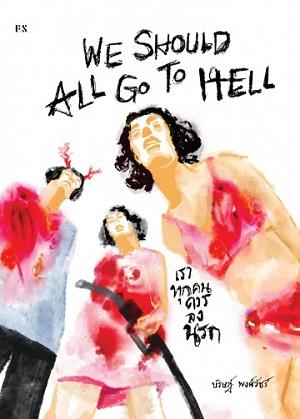 P.S
WE SHOULD
ALL GO TO HELL
เรา
ทุกคน
ควร
ลง
นรก
ปริษฎ์ พงศ์วัชร์